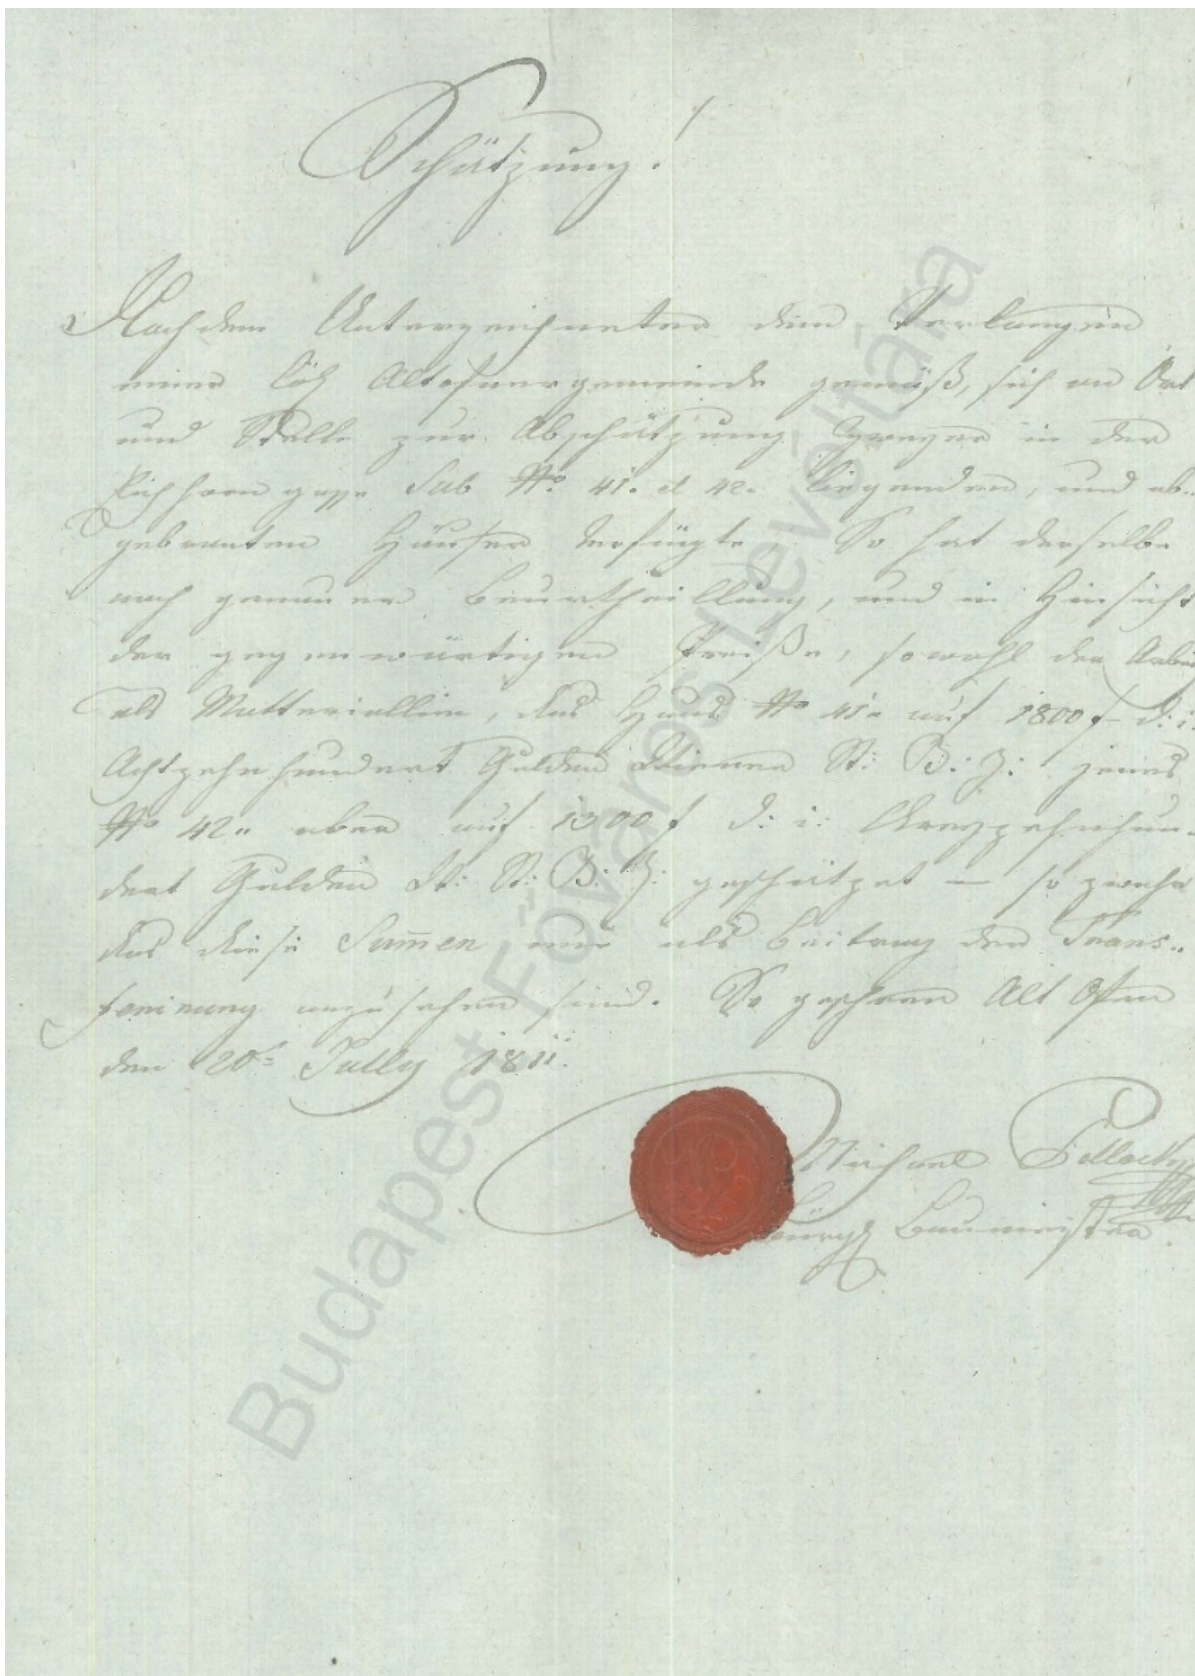 Schätzung!
Nachdem Unterzeichneter dem Verlangen
einer Löb Altofnergemeinde gemäß, sich an Ort
und Stelle zur Abschätzung zweyer in der
Eichhorn gasse Sub No 41. et 42. liegenden, und ab-
gebranten Häuser verfügte. So hat derselbe
nach genauer Beurtheillung, und in Hinsicht
der gegenwärtigen Preiße, sowohl der Arbeit
als Matteriallien, das Haus No 41" auf 1800 f d: i:
Achtzehnhundert Gulden Wiener St: B: Z: jenes
No 42" aber auf 1300 f d: i: dreyzehnhun-
dert Gulden W: St: B: Z: geschätzet — so zwahr
das diese Summen nur als Beitrag der Trans-
ferirung anzusehen sind. So geschehen Alt Ofen
den 20t Jully 1811.
Michael
bürgl Baumeister.
Budapest Főváros Levéltára